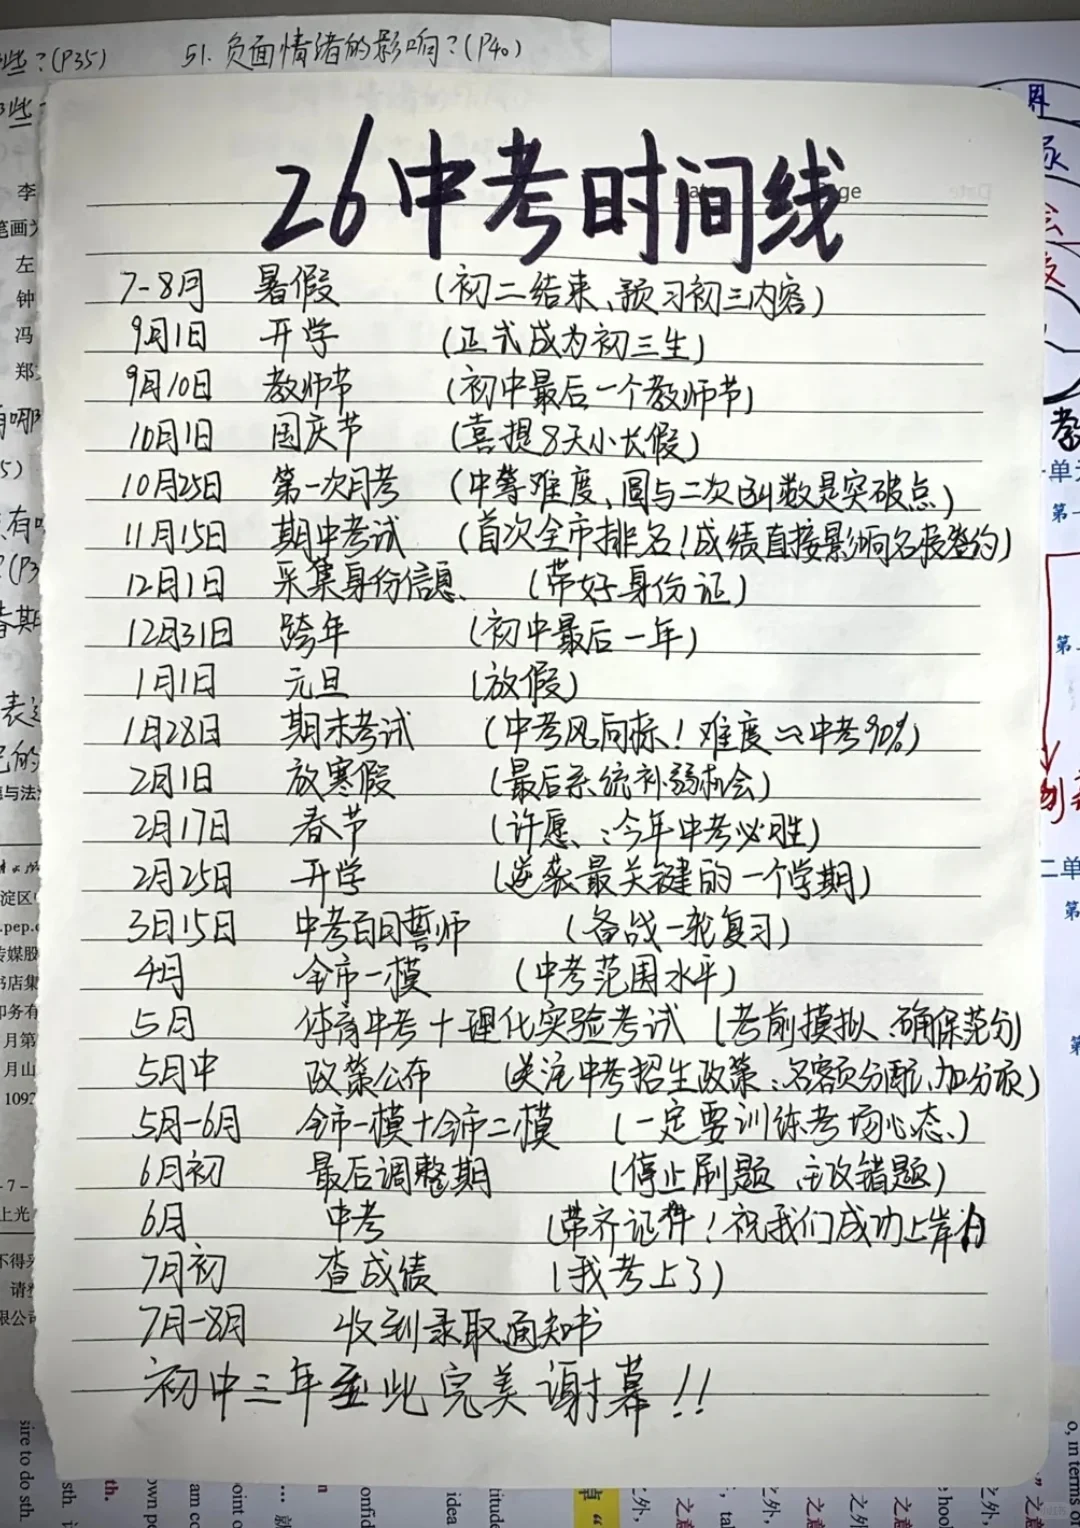 些？(P35) 51. 负面情绪的影响？(P40)
26中考时间线
7-8月 暑假 (初二结束、预习初三内容)
9月1日 开学 (正式成为初三生)
9月10日 教师节 (初中最后一个教师节)
10月1日 国庆节 (喜提8天小长假)
10月25日 第一次月考 (中等难度、圆与二次函数是突破点)
11月15日 期中考试 (首次全市排名！成绩直接影响名校签约)
12月1日 采集身份信息 (带好身份证)
12月31日 跨年 (初中最后一年)
1月1日 元旦 (放假)
1月28日 期末考试 (中考风向标！难度≈中考90%)
2月1日 放寒假 (最后系统补弱机会)
2月17日 春节 (许愿：今年中考必胜)
2月25日 开学 (逆袭最关键的一个学期)
3月15日 中考百日誓师 (备战一轮复习)
4月 全市一模 (中考范围水平)
5月 体育中考+理化实验考试 (考前摸拟、确保范分)
5月中 政策公布 (关注中考招生政策：名额分配、加分项)
5月-6月 全市一模+全市二模 (一定要训练考场心态)
6月初 最后调整期 (停止刷题、主攻错题)
6月 中考 (带齐证件！祝我们成功上岸
7月初 查成绩 (我考上了)
7月-8月 收到录取通知书
初中三年至此完美谢幕！！